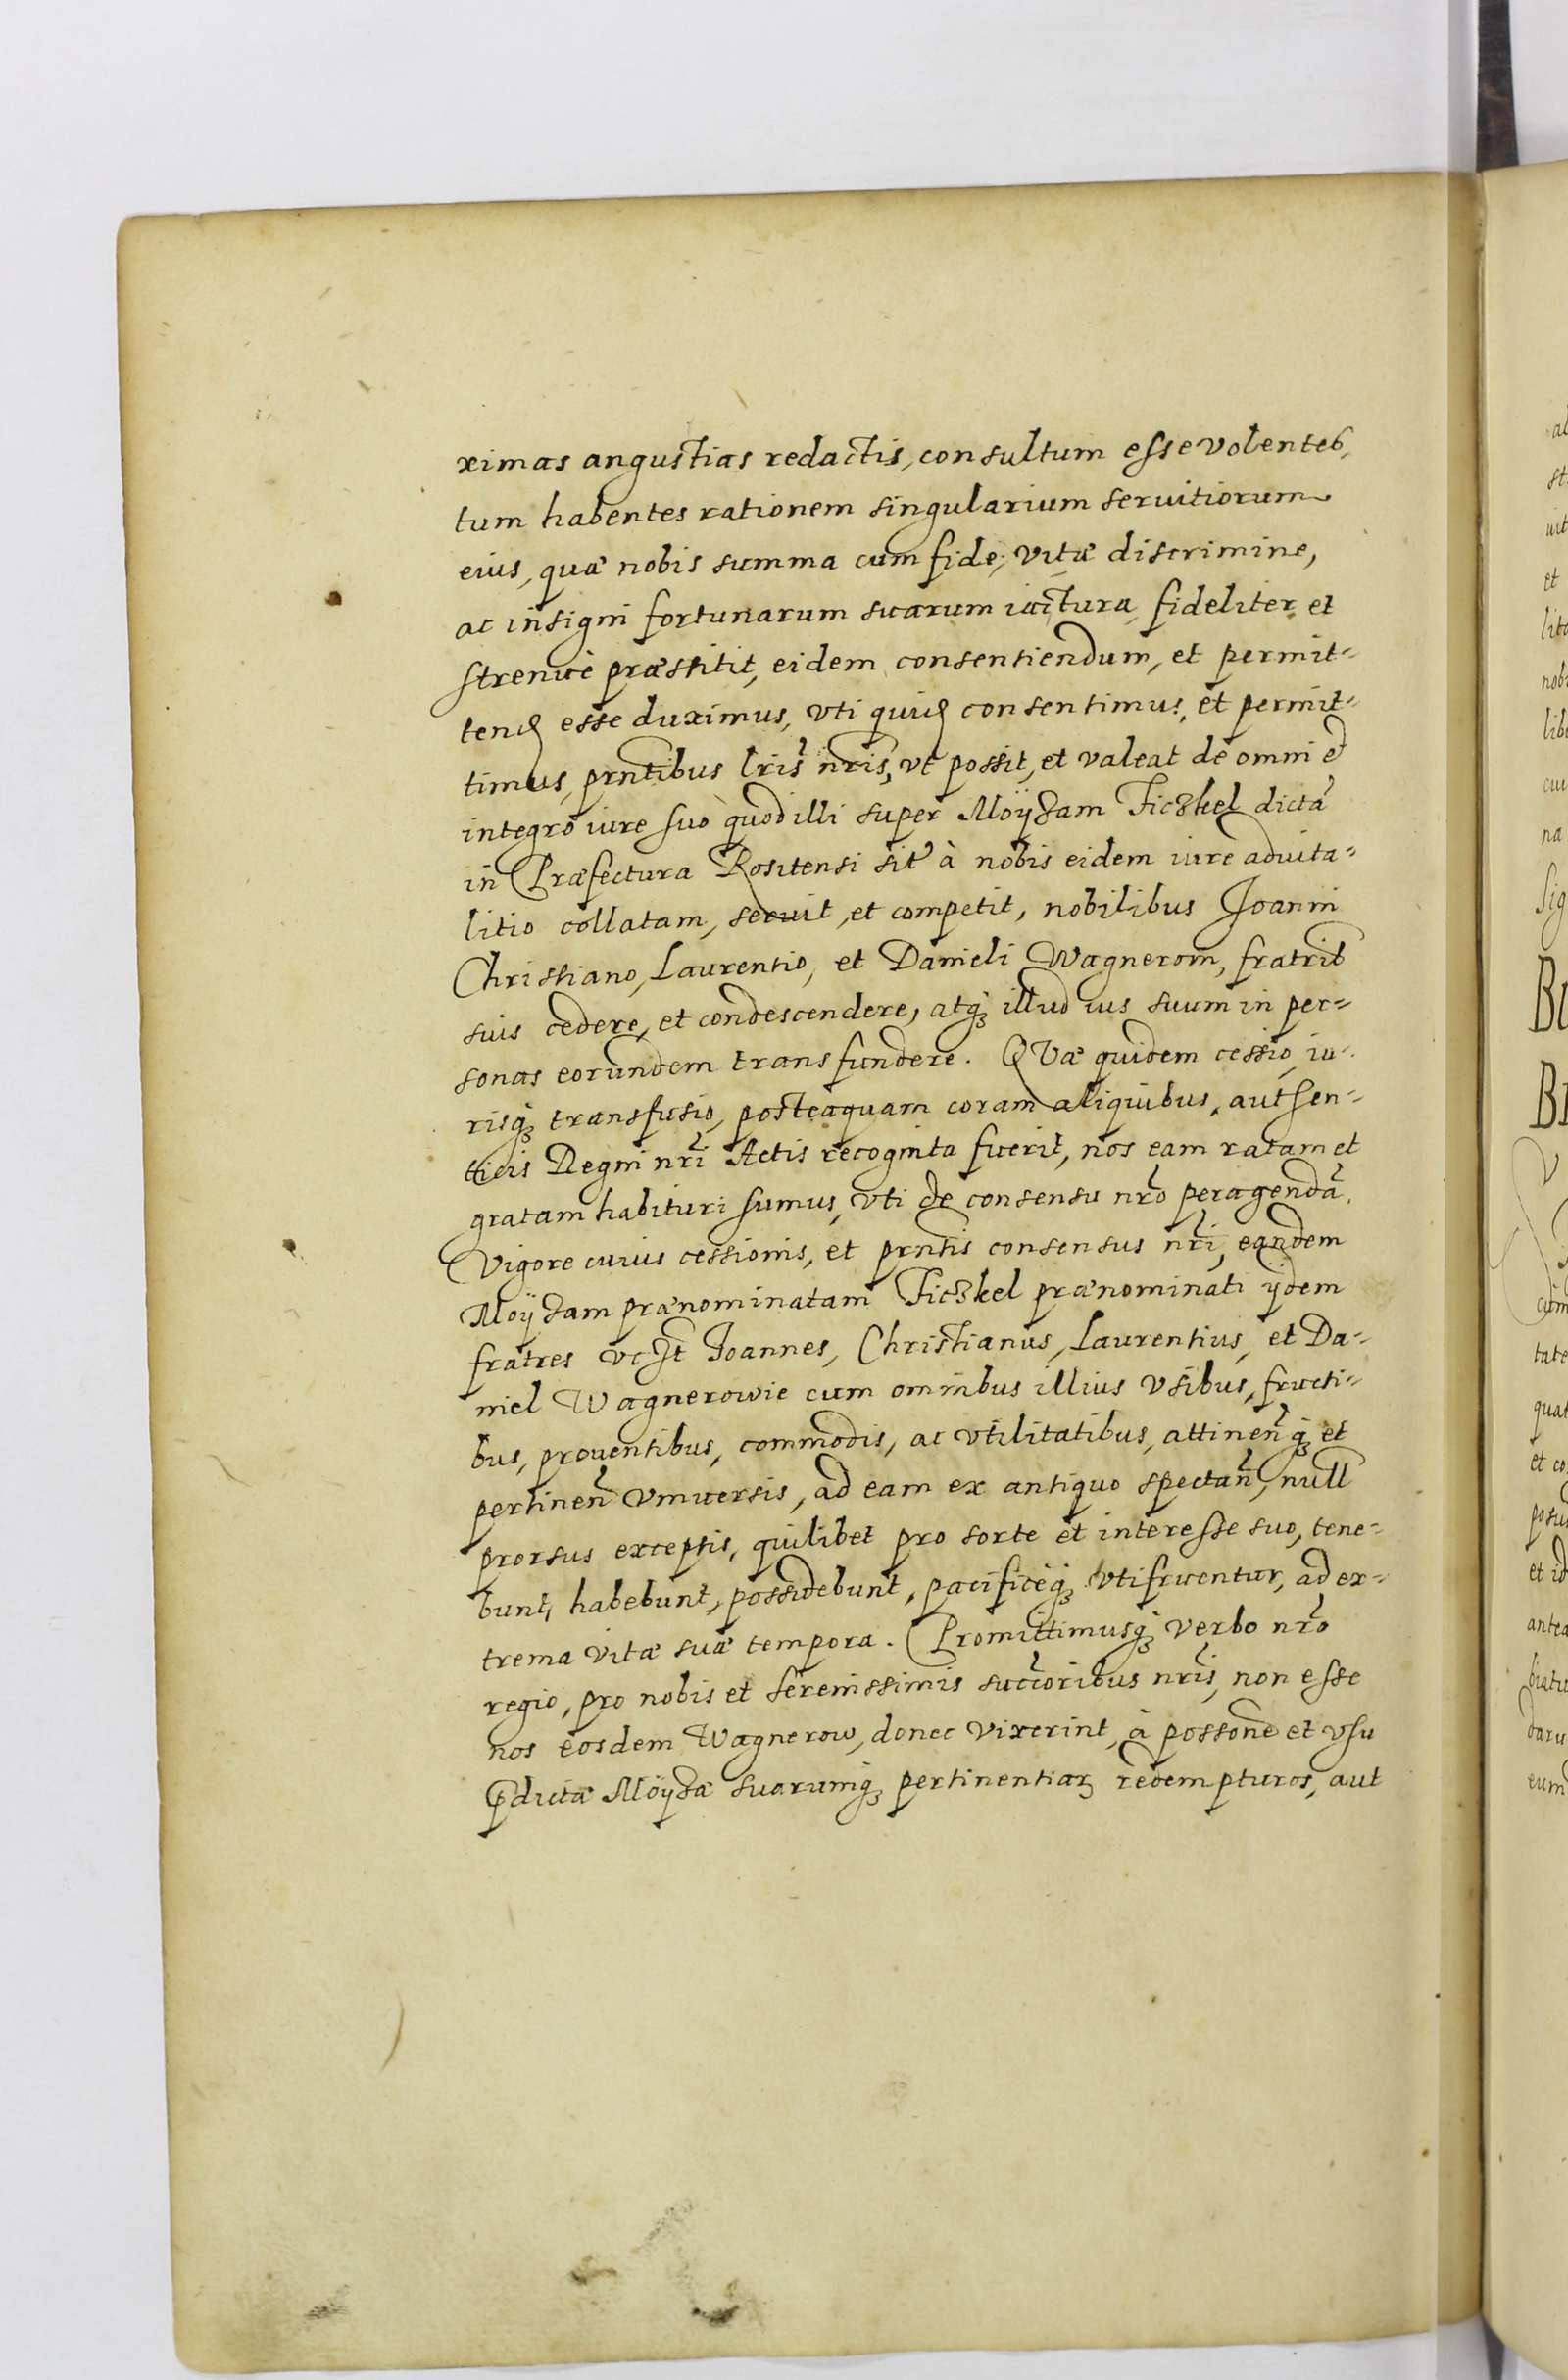 ximas angustias redactis, consultum esse volentes,
tum habentes rationem singularium seruitiorum
eius, quæ nobis summa cum fide, vitæ discrimine,
ac insigni fortunarum suarum iactura, fideliter et
strenuè præstitit, eidem consentiendum, et permit-
tend esse duximus, vti quid consentimus, et permit-
timus, prntibus lris nris, vt possit, et valeat de omni et
integro iure suo quod illi super Moÿzam Ficzkel dictã
in Præfectura Rositensi sitã à nobis eidem iure aduita-
litio collatam, seruit, et competit, nobilibus Joanni
Christiano, Laurentio, et Danieli Wagnerom, fratrib
suis cedere, et condescendere, atq illud ius suum in per-
sonas eorundem transfundere. QVæ quidem cessio, iu-
risq transfusio, posteaquam coram aliquibus, authen-
ticis Regni nri Actis recognita fuerit, nos eam ratam et
gratam habituri sumus, vti de consensu nro peragendã.
Vigore cuius cessionis, et prntis consensus nri, eandem
Moÿzam prænominatam Ficzkel prænominati ijdem
fratres vczt Joannes, Christianus, Laurentius, et Da-
niel Wagnerowie cum omnibus illius vsibus, fructi-
bus, prouentibus, commodis, ac vtilitatibus, attinenq et
pertinen vniuersis, ad eam ex antiquo spectan, null
prorsus exceptis, quilibet pro sorte et interesse suo, tene-
bunt, habebunt, possidebunt, pacificèq vtifruentur, ad ex-
trema vitæ suæ tempora. Promittimusq verbo nro
regio, pro nobis et serenissimis succoribus nris, non esse
nos eosdem Wagnerow, donec vixerint, à possone et vsu
pdictæ Moÿzæ suarumq pertinentiar redempturos, aut